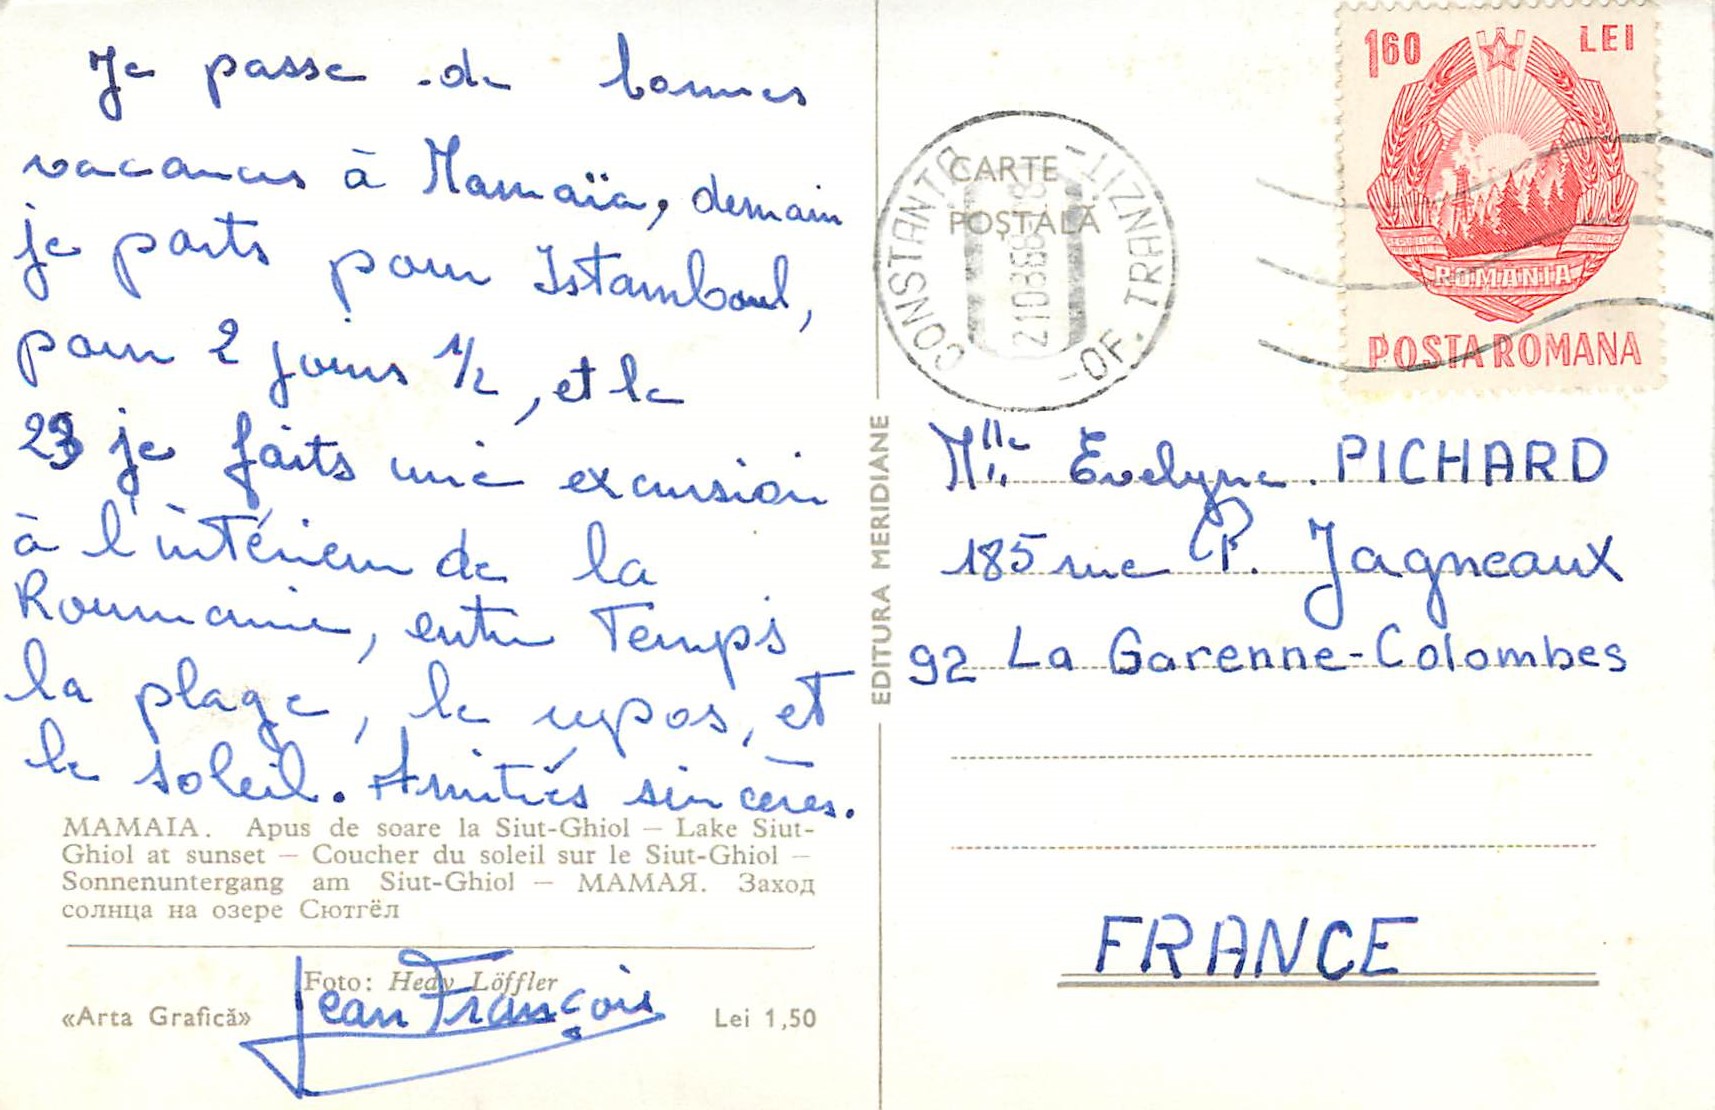 Je passe de bonnes
vacances à Mamaïa, demain
je parts pour Istamboul,
pour 2 jours 1/2, et le
23 je faits une excursion
à l'intérieur de la
Roumanie, entre temps
la plage, le repos, et
le soleil. Amitiés sincères.
MAMAIA. Apus de soare la Siut-Ghiol — Lake Siut-
Ghiol at sunset — Coucher du soleil sur le Siut-Ghiol —
Sonnenuntergang am Siut-Ghiol — МАМАЯ. Заход
солнца на озере Сютгёл
Foto: Hedy Löffler
Jean François
«Arta Grafică»
Lei 1,50
EDITURA MERIDIANE
CARTE
POȘTALĂ
CONSTANTA
-OF. TRANZIL-
1,60 LEI
ROMANIA
POSTA ROMANA
Mlle Evelyne PICHARD
185 rue P. Jagneaux
92 La Garenne-Colombes
FRANCE